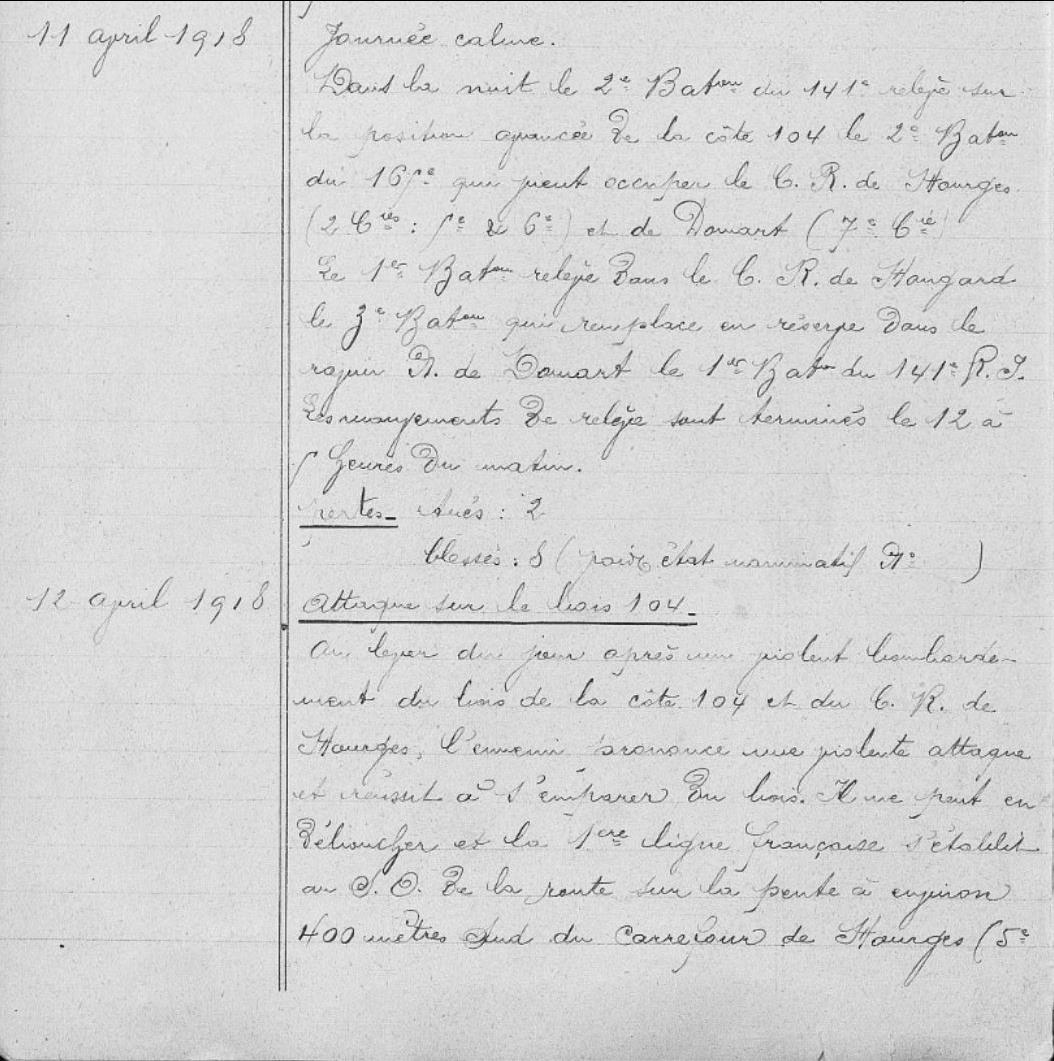 11 avril 1918
Journée calme.
Dans la nuit le 2e Baton du 141e relève sur
la position avancée de la côte 104 le 2e Baton
du 165e qui vient occuper le C. R. de Hourges
(2 Cies : 5e & 6e) et de Domart (7e Cie)
Le 1er Baton relève dans le C. R. de Hangard
le 3e Baton qui remplace en réserve dans le
ravin N. de Domart le 1er Baton du 141e R.I.
Les mouvements de relève sont terminés le 12 à
5 heures du matin.
pertes - tués : 2
blessés : 8 (voir état nominatif No )
12 avril 1918
Attaque sur le bois 104.
Au lever du jour après un violent bombarde-
ment du bois de la côte 104 et du C. R. de
Hourges, l'ennemi prononce une violente attaque
et réussit à s'emparer du bois. Il ne peut en
déboucher et la 1ère ligne française s'établit
au S. O. de la route sur la pente à environ
400 mètres Sud du carrefour de Hourges (5e